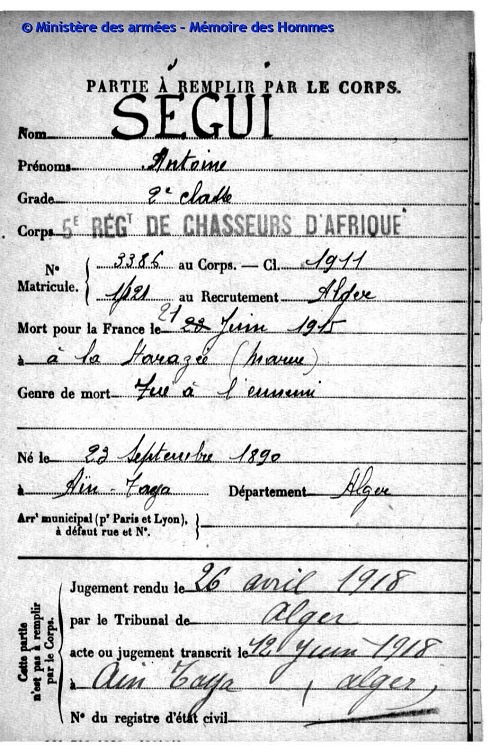 © Ministère des armées - Mémoire des Hommes
PARTIE À REMPLIR PAR LE CORPS.
Nom SEGUI
Prénoms Antoine
Grade 2e classe
Corps 5E RÉGT DE CHASSEURS D'AFRIQUE
N° Matricule. { 3386 au Corps. — Cl. 1911
1421 au Recrutement Alger
Mort pour la France le 21 22 Juin 1915
à à la Harazée (Marne)
Genre de mort Tué à l'ennemi
Né le 23 Septembre 1890
à Aïn-Taya Département Alger
Arrt municipal (pr Paris et Lyon),
à défaut rue et N°.
Cette partie n'est pas à remplir par le Corps.
Jugement rendu le 26 avril 1918
par le Tribunal de Alger
acte ou jugement transcrit le 12 Juin 1918
à Aïn Taya (Alger)
N° du registre d'état civil